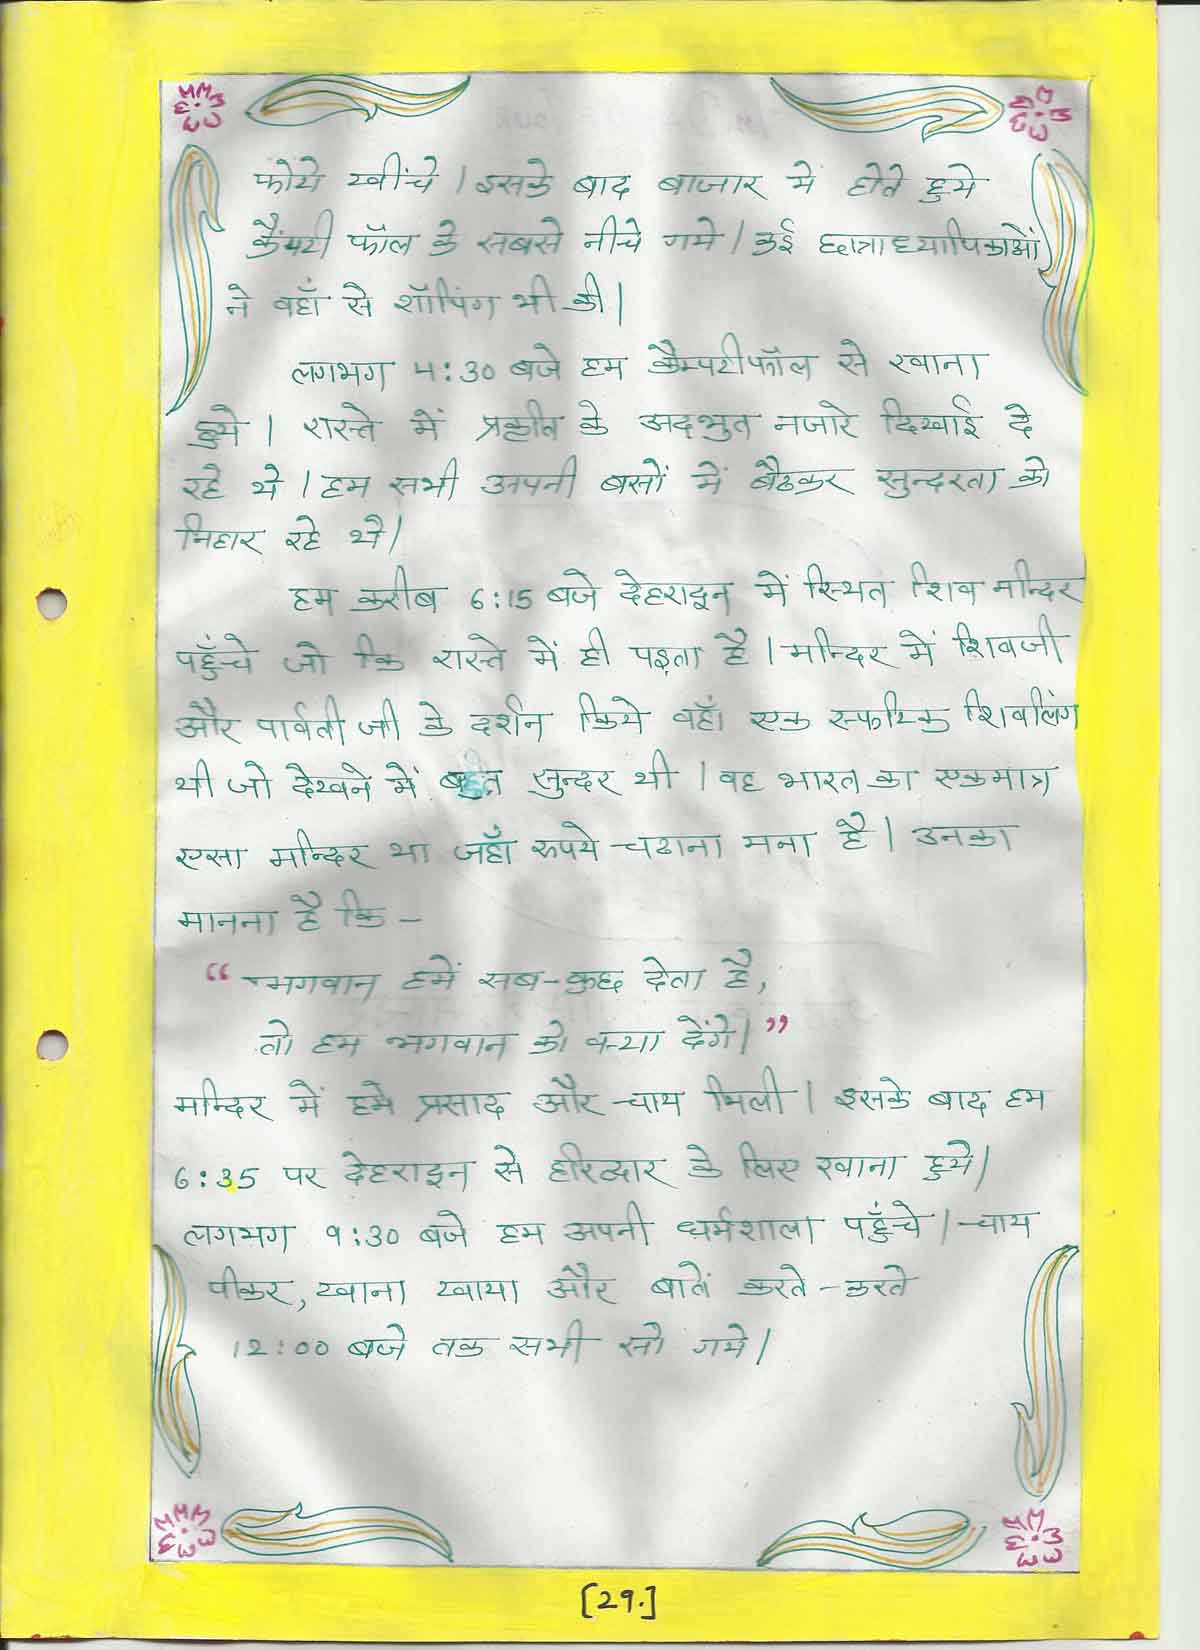 फोटो खींचे । इसके बाद बाजार में होते हुये
कैम्पटी फॉल के सबसे नीचे गये । कई छात्राध्यापिकाओं
ने वहाँ से शॉपिंग भी की ।
लगभग 4:30 बजे हम कैम्पटीफॉल से रवाना
हुये । रास्ते में प्रकृति के अदभुत नजारे दिखाई दे
रहे थे । हम सभी अपनी बसों में बैठकर सुन्दरता को
निहार रहे थे ।
हम करीब 6:15 बजे देहरादून में स्थित शिव मन्दिर
पहुँचे जो कि रास्ते में ही पड़ता है । मन्दिर में शिवजी
और पार्वती जी के दर्शन किये वहाँ एक स्फटिक शिवलिंग
थी जो देखने में बहुत सुन्दर थी । वह भारत का एकमात्र
एसा मन्दिर था जहाँ रुपये चढाना मना है । उनका
मानना है कि –
“ भगवान हमें सब-कुछ देता है,
तो हम भगवान को क्या देंगे । ”
मन्दिर में हमे प्रसाद और चाय मिली । इसके बाद हम
6:35 पर देहरादून से हरिद्वार के लिए रवाना हुये ।
लगभग 9:30 बजे हम अपनी धर्मशाला पहुँचे । चाय
पीकर, खाना खाया और बातें करते-करते
12:00 बजे तक सभी सो गये ।
[29.]